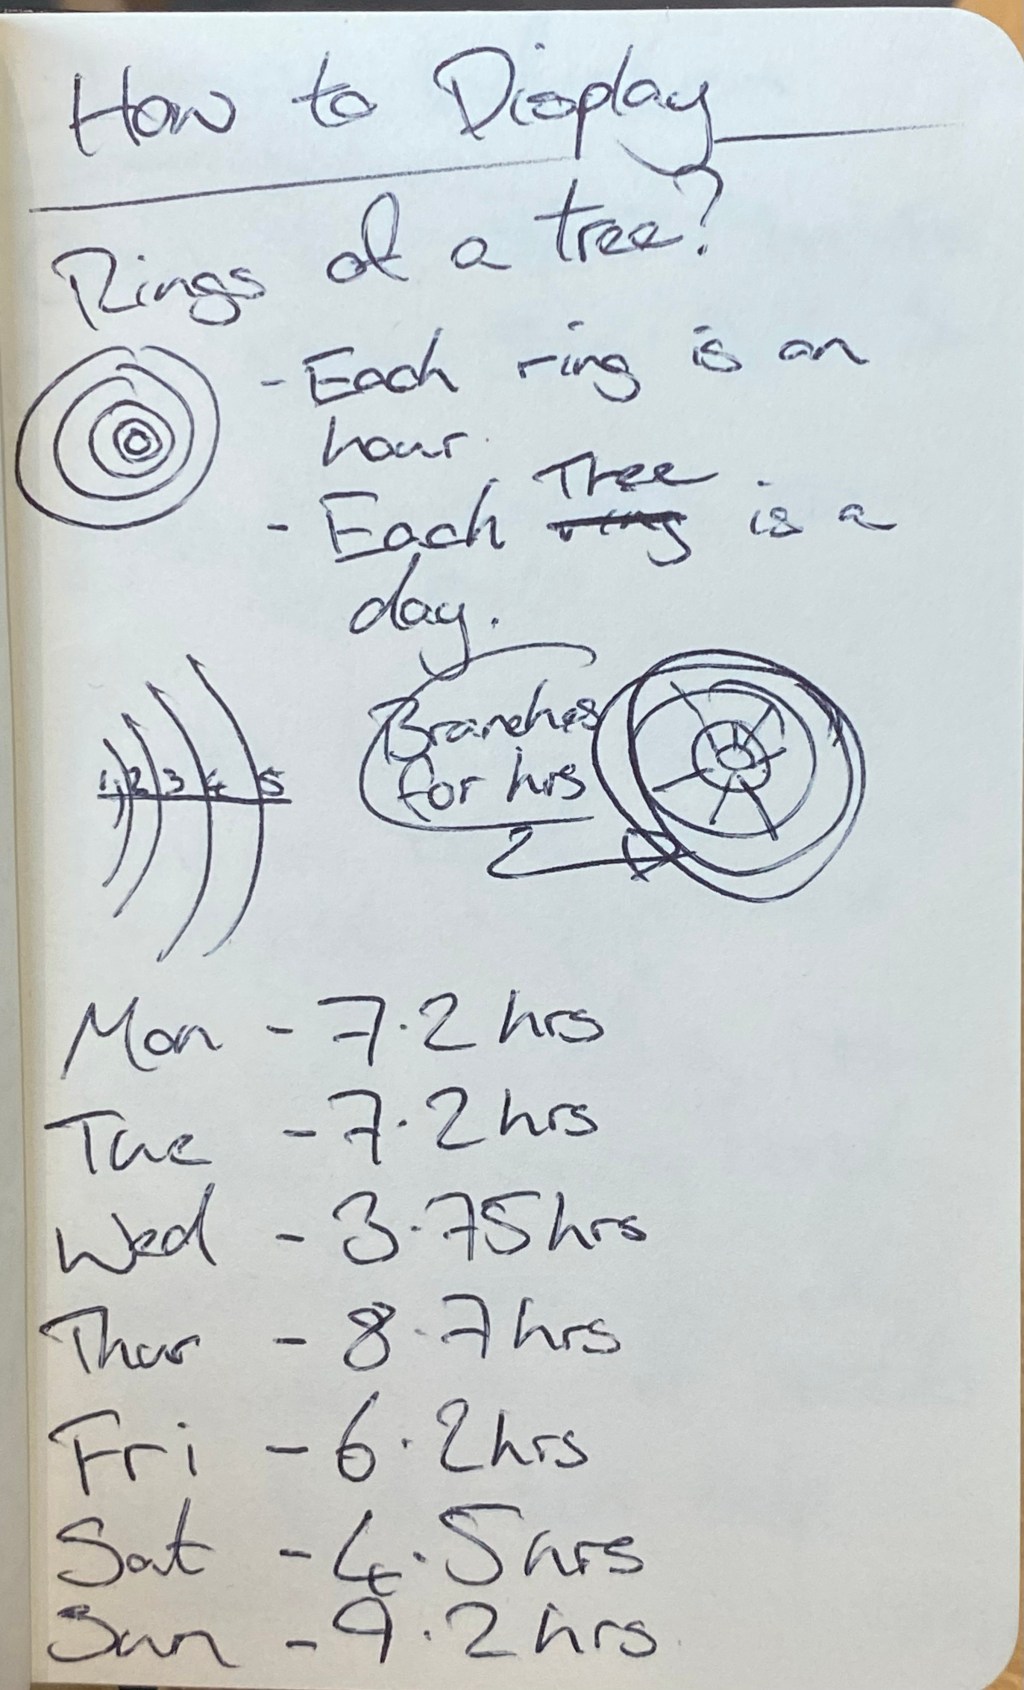 How to Display
Rings of a tree?
- Each ring is an
hour.
- Each Tree ring is a
day.
1 2 3 4 5
Branches
for hrs
Mon - 7.2 hrs
Tue - 7.2 hrs
Wed - 3.75 hrs
Thur - 8.7 hrs
Fri - 6.2 hrs
Sat - 4.5 hrs
Sun - 9.2 hrs